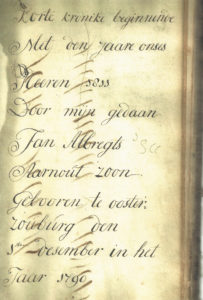 Korte kronike beginnende
Met den jaare onses
Heeren
Door mijn gedaan
Jan Albregts
Aarnout zoon
Gebooren te ooster
zouburg den
desember in het
Jaar 1790